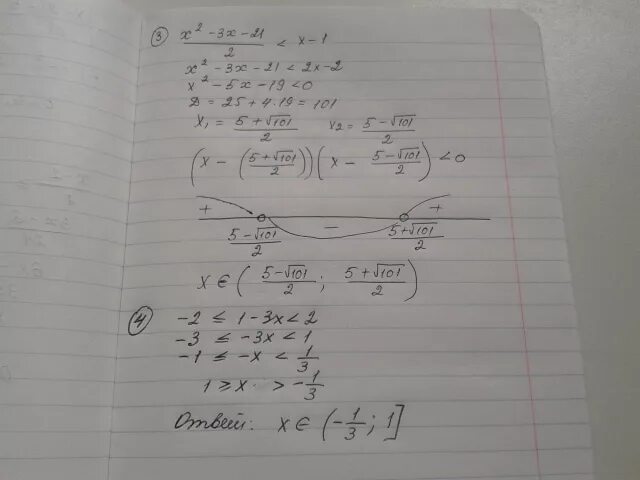 ③ (x² - 3x - 21)/2 < x - 1
x² - 3x - 21 < 2x - 2
x² - 5x - 19 < 0
D = 25 + 4·19 = 101
x₁ = (5+√101)/2 x₂ = (5-√101)/2
(x - ((5+√101)/2))(x - (5-√101)/2) < 0
+ - +
(5-√101)/2 (5+√101)/2
x ∈ ((5-√101)/2 ; (5+√101)/2)
④ -2 ≤ 1 - 3x < 2
-3 ≤ -3x < 1
-1 ≤ -x < 1/3
1 ≥ x > -1/3
Ответ: x ∈ (-1/3 ; 1]